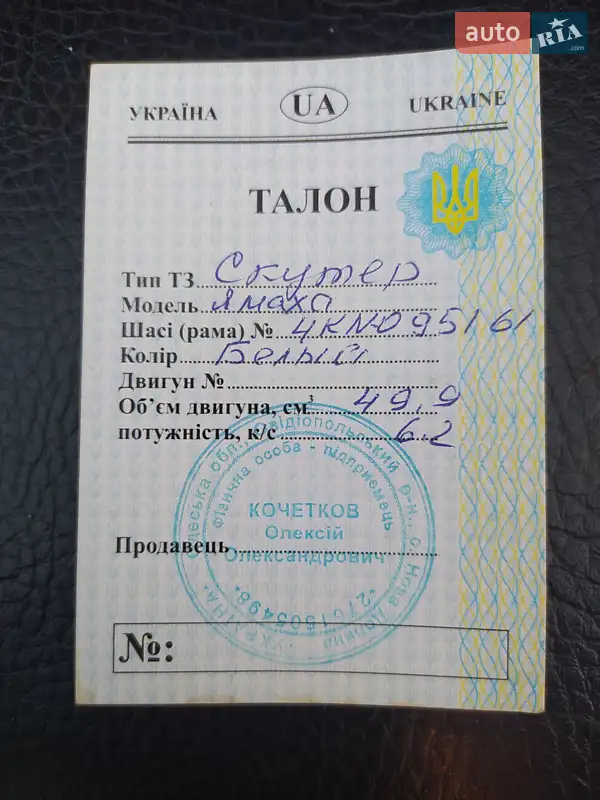 auto RIA.com
УКРАЇНА UA UKRAINE
ТАЛОН
Тип ТЗ Скутер
Модель Ямаха
Шасі (рама) № 4KN-095161
Колір Белый
Двигун №
Об'єм двигуна, см³ 49,9
потужність, к/с 6.2
Продавець
КОЧЕТКОВ
Олексій
Олександрович
Фізична особа - підприємець
Одеська обл., Овідіопольський р-н., с. Нова Долина
УКРАЇНА
№: